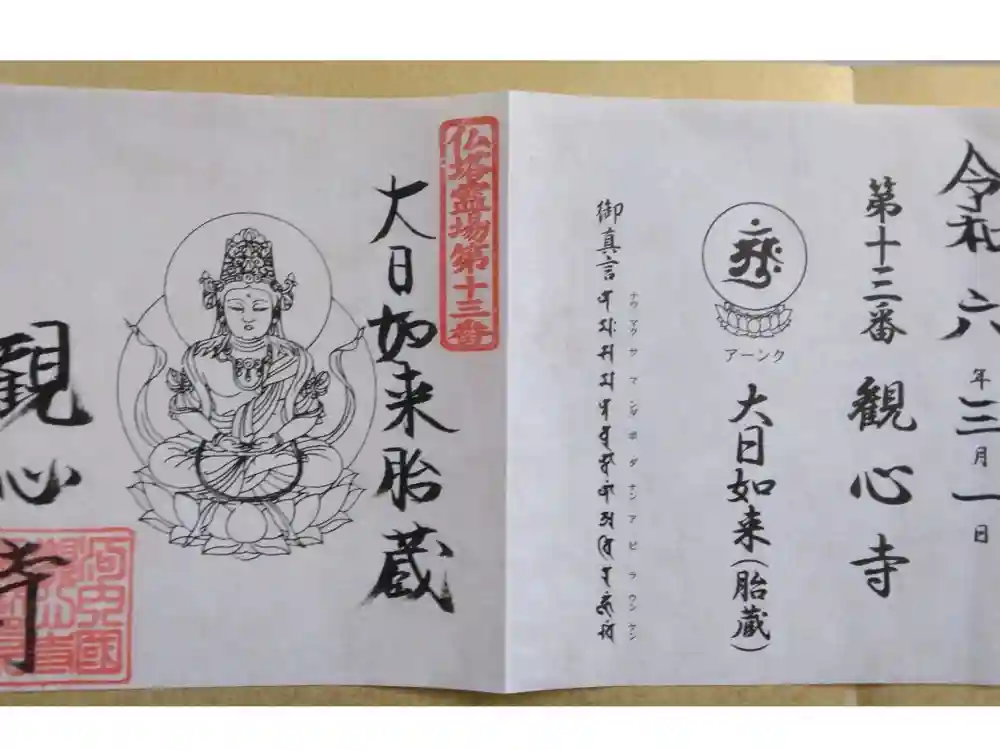 令和六年三月一日
第十三番 観心寺
アーンク
大日如来(胎蔵)
ナウ マク サ マ ンダ ボ ダ ナン ア ビ ラ ウン ケン
御真言
仏塔霊場第十三番
大日如来胎蔵
観心寺
河内國